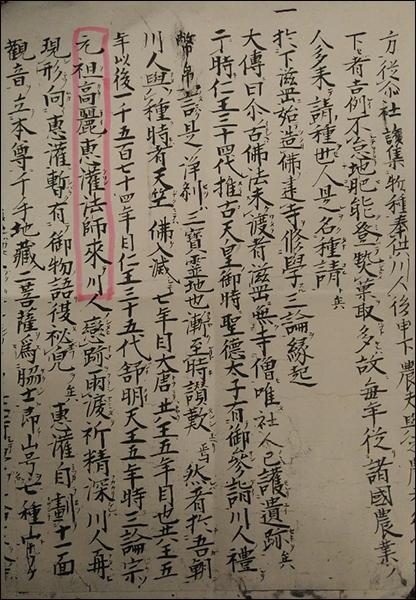 方従尓社護集物種奉供川人後申下農夫
下者吉例不急地肥能登熟菓取多故毎年従諸國農業ノ
人多来請種也人是名種請
一
於下滋岳始造佛建寺修學三論縁起
大傳曰尓古佛法未渡者滋岳無寺僧唯社人已護遺跡
于時仁王三十四代推古天皇御時聖德太子有御参詣川人禮
幣帛言是浄刹三寳霊地也漸至時讃歎 然者於吾朝
川人與種時有天竺佛入滅 七年目大唐王五年目也王五
年以後一千五百七十四年目仁王三十五代舒明天王五年時三論宗
元祖高麗惠灌法師來川人戀跡雨渡祈精深川人再
現形向惠灌暫有御物語後秘 惠灌自劃十一面
觀音立本尊千手地藏二菩薩為脇士即山号七種山